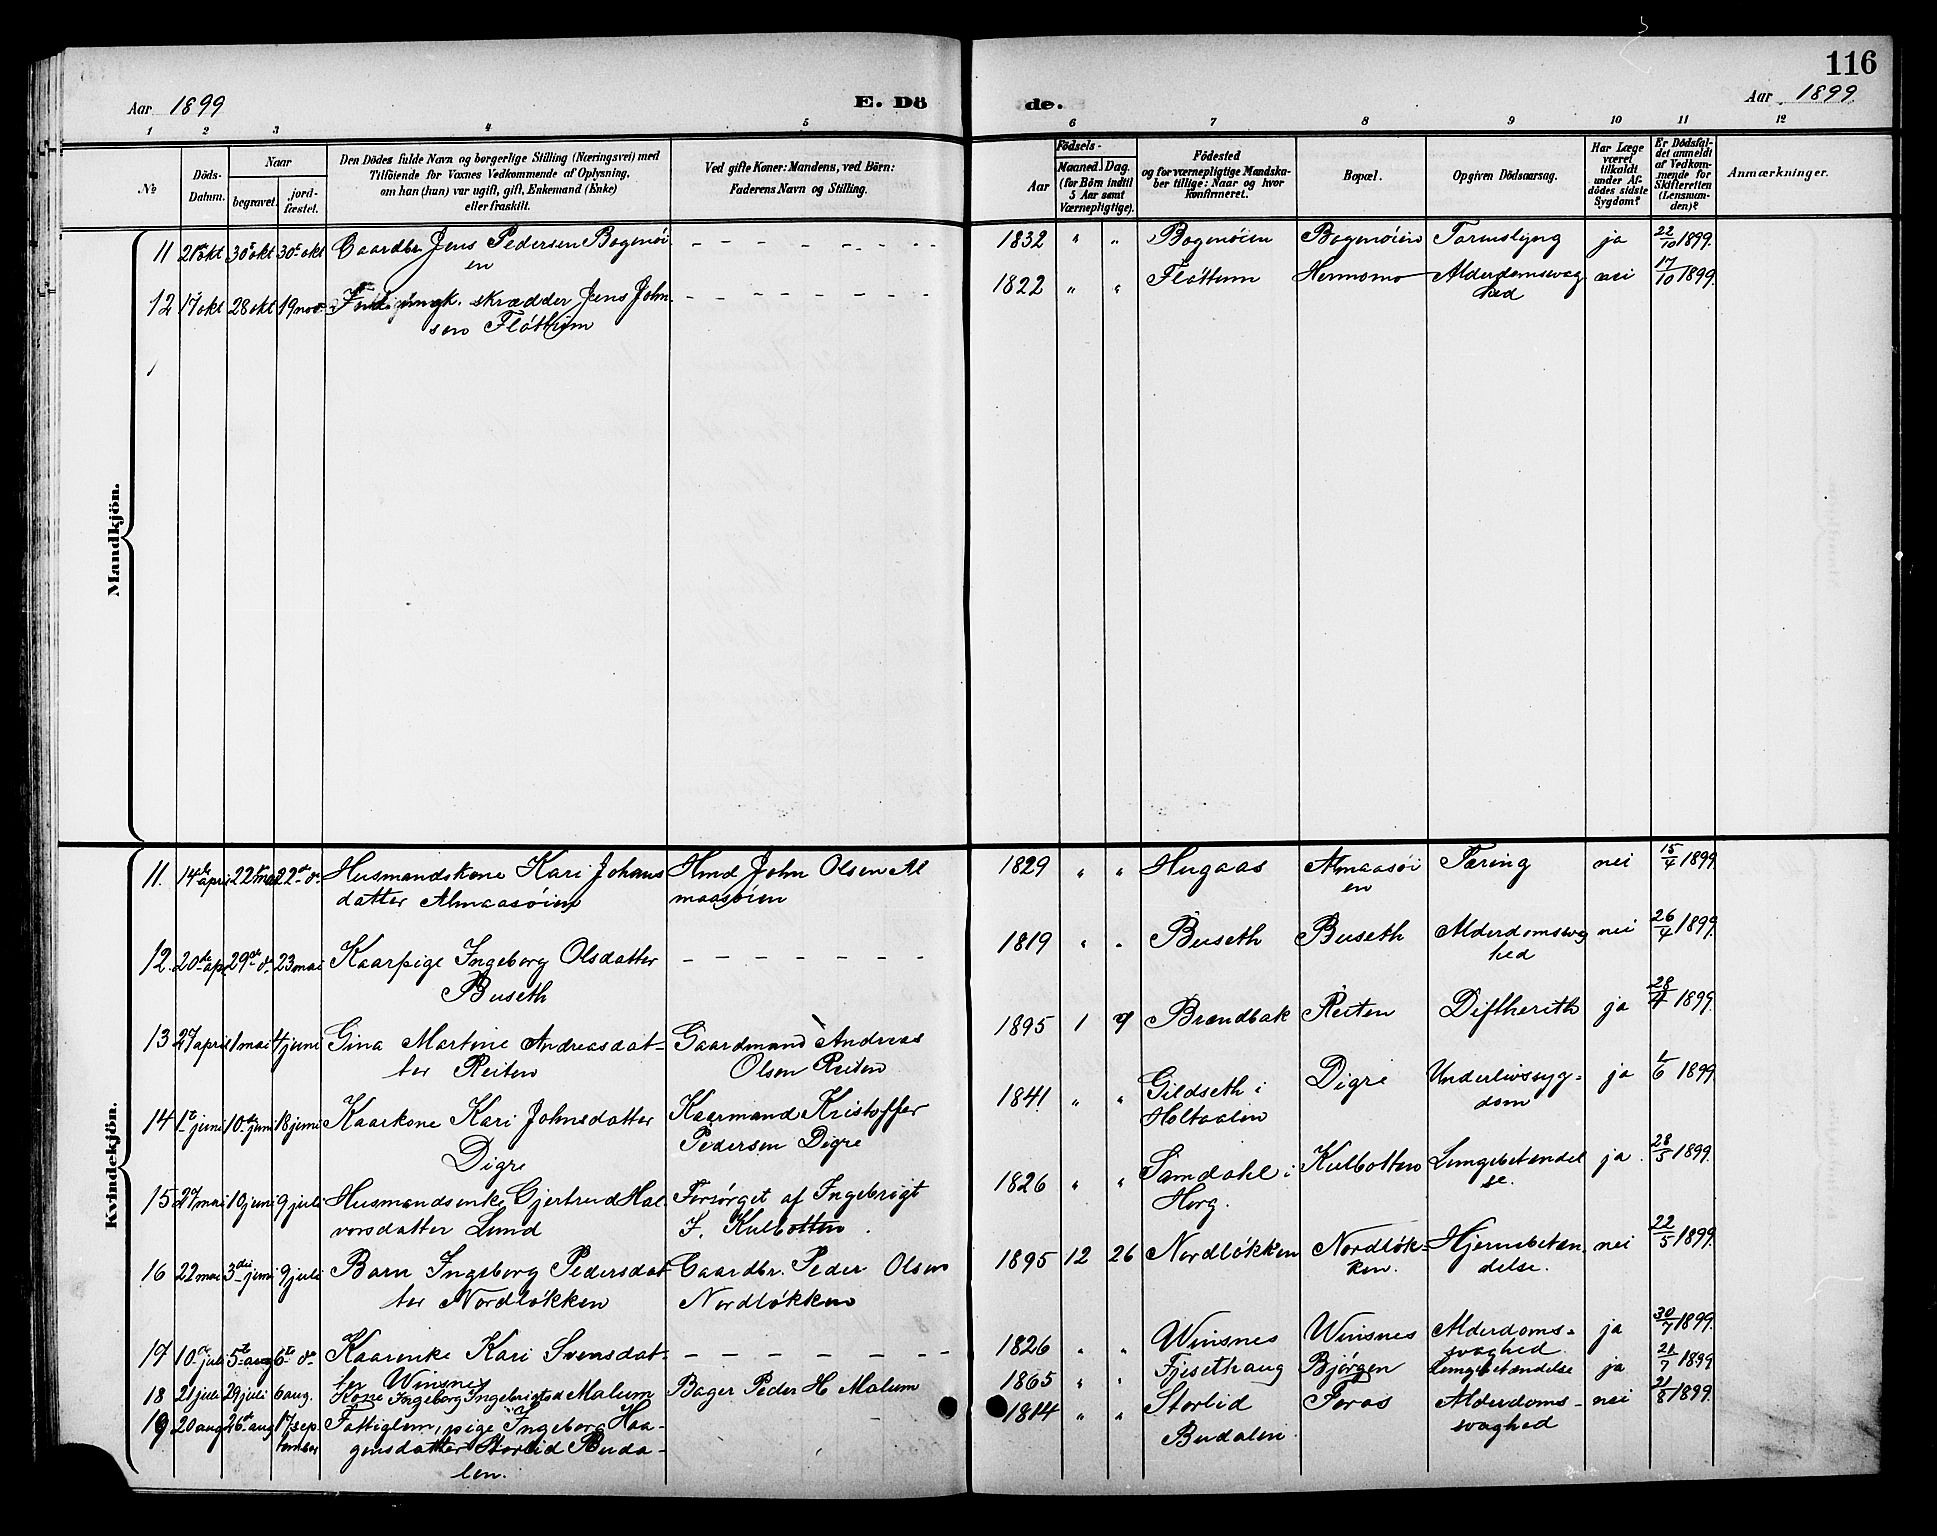 116
Aar 1899 E. Dö de. Aar 1899
1 2 3 4 5 6 7 8 9 10 11 12
No
Döds-Datum.
Naar
begravet.
jordfæstet.
Den Dödes fulde Navn og borgerlige Stilling (Næringsvei) med
Tilföiende for Voxnes Vedkommende af Oplysning,
om han (hun) var ugift, gift, Enkemand (Enke)
eller fraskilt.
Ved gifte Koner: Mandens, ved Börn:
Faderens Navn og Stilling.
Födsels-
Aar
Maaned. Dag.
(for Börn indtil
5 Aar samt
Værnepligtige).
Födested
og for værnepligtige Mandskaber
tillige: Naar og hvor
Konfirmeret.
Bopæl.
Opgiven Dödsaarsag.
Har Læge
været
tilkaldt
under Afdödes
sidste
Sygdom?
Er Dödsfaldet
anmeldt
af Vedkommende
for
Skifteretten
(Lensmanden)?
Anmærkninger.
Mandkjön.
11 21 okt 30te okt 30te okt Gaardbr. Jens Pedersen Bogenöien - - - 1832 " " Bogenöien Bogenöien Tarmslyng ja 22/10 1899.
12 17 okt 28 okt 19 nov skrædder Jens Johnsen Flöttum - - - 1822 " " Flöttum Hermomo Alderdomssvaghed nei 17/10 1899.
Kvindekjön.
11. 14de april 22de mai 22de do Husmandskone Kari Johansdatter Almaasöien Hmd John Olsen Almaasöien 1829 " " Hugaas Almaasöien Tæring nei 15/4 1899.
12. 20de ap. 29de do 23 mai Kaarpige Ingeborg Olsdatter Buseth - - - 1819 " " Buseth Buseth Alderdomssvaghed nei 26/4 1899.
13 27 april 1 mai 4 juni Gina Martine Andreasdatter Reiten Gaardmand Andreas Olsen Reiten 1895 1 9 Brændbak Reiten Diftherith ja 28/4 1899.
14 1te juni 10de juni 18 juni Kaarkone Kari Johnsdatter Digre Kaarmand Kristoffer Pedersen Digre 1841 " " Gildseth i Holtaalen Digre Underlivssygdom ja /6 1899.
15 27 mai 10 juni 9 juli Husmandsenke Gjertrud Halvorsdatter Lund Forsörget af Ingebrigt J. Kulbotten 1826 " " Samdahl i Horg. Kulbotten Lungebetændelse. ja 28/5 1899.
16 22 mai 3die juni 9 juli Barn Ingeborg Pedersdatter Nordlökken Gaardbr. Peder Olsen Nordlökken 1895 12 26 Nordlökken Nordlökken. Hjernebetændelse. nei 22/5 1899.
17 10de juli 5te aug 6te do Kaarenke Kari Svensdatter Winsnes - - - 1826 " " Winsnes Winsnes Alderdomssvaghed ja 30/7 1899.
18 21 juli 29 juli 6 aug. Kone Ingeborg Ingebrigtsd Malum Bager Peder H Malum 1865 " " Fjisethaug Björgen Lungebetændelse ja 21/7 1899
19 20 aug 26de aug 17 september Fattiglem, pige Ingeborg Haagensdatter Storlid Budalen. - - - 1814 " " Storlid Budalen Foros Alderdomssvaghed nei 21/8 1899.